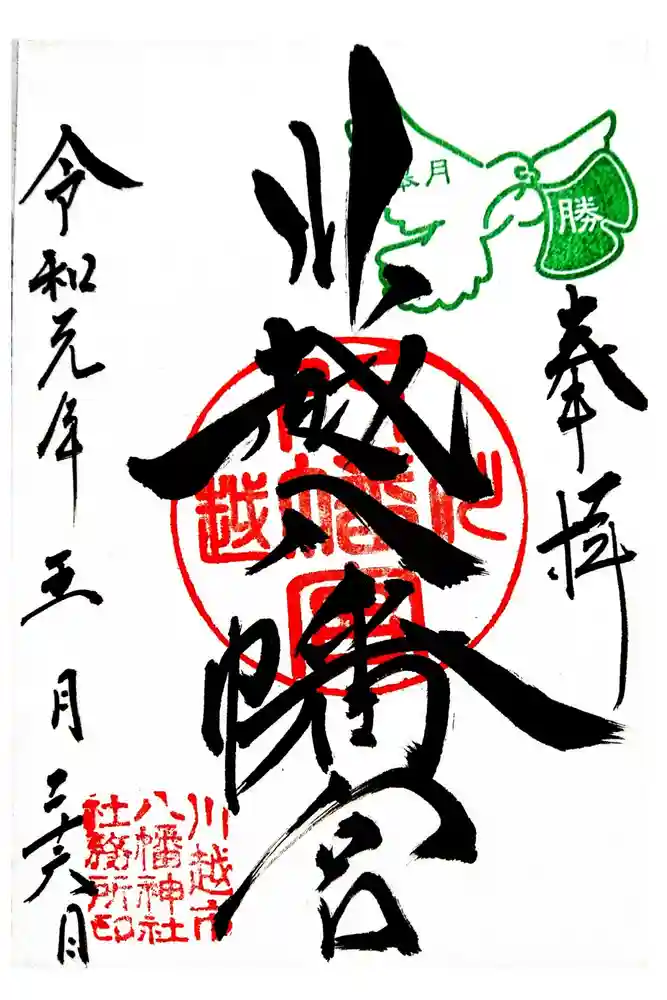 勝
皐月
奉拝
川越八幡宮
川越八幡宮
令和元年 五月 二十六日
川越市
八幡神社
社務所印